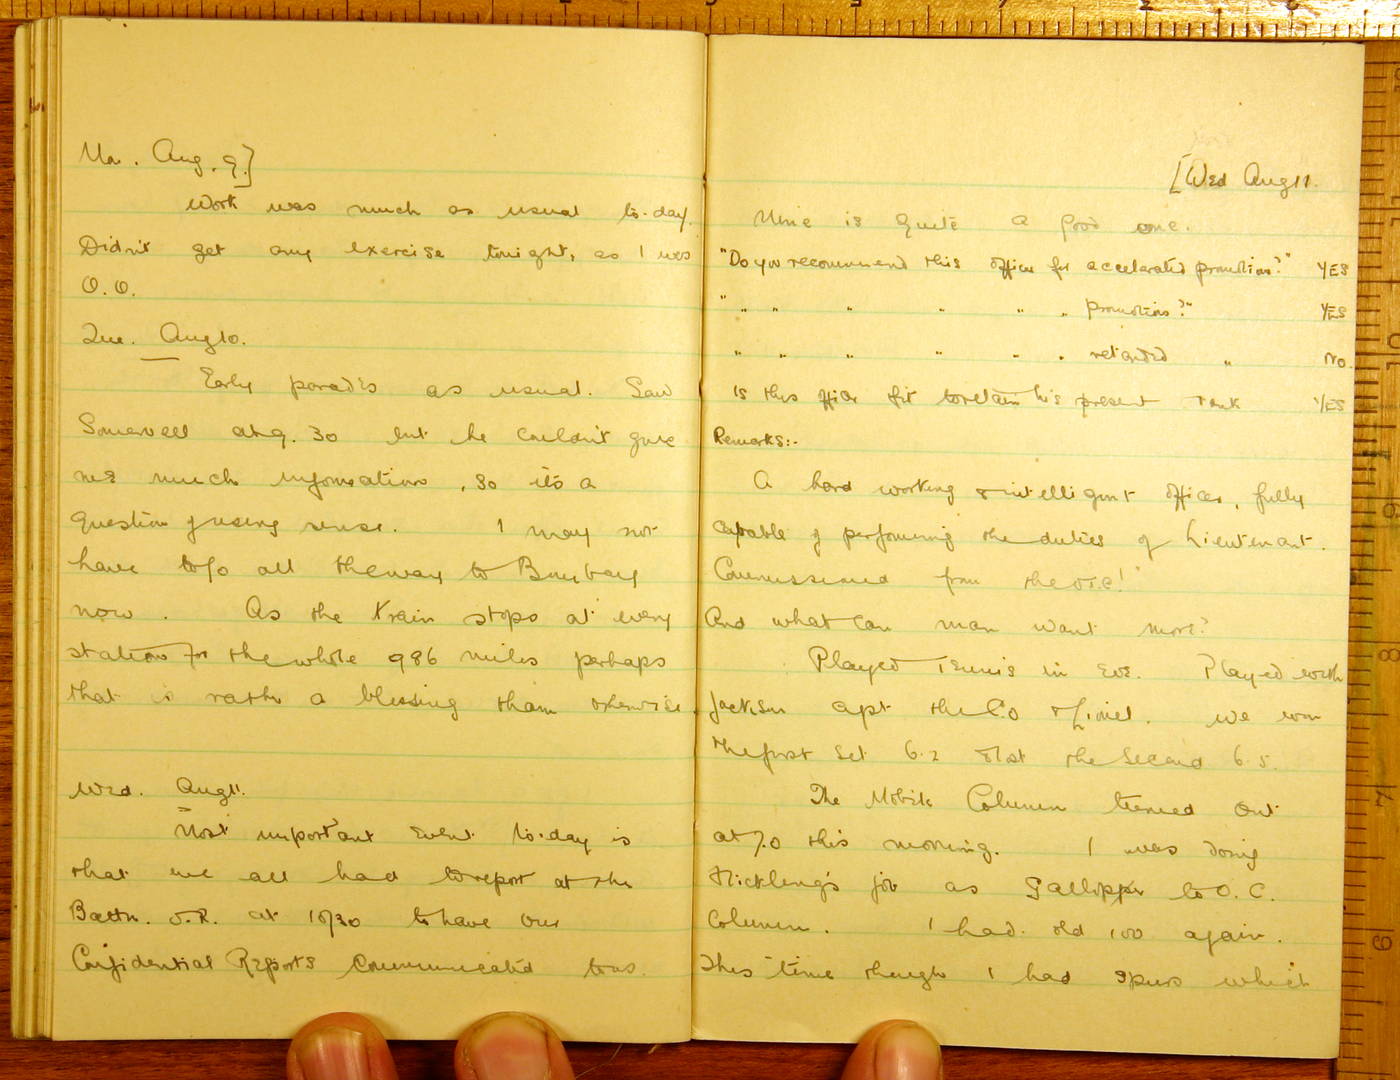 Mon. Aug. 9.]
Work was much as usual to-day.
Didn't get any exercise tonight, as I was
O.O.
Tue. Aug 10.
Early parades as usual. Saw
Somervell at 9.30 but he couldn't give
me much information, so it's a
question of using sense. I may not
have to go all the way to Bombay
now. As the train stops at every
station for the whole 986 miles perhaps
that is rather a blessing than otherwise.
Wed. Aug 11.
Most important event to-day is
that we all had to report at the
Battn. O.R. at 10/30 to have our
Confidential Reports communicated to us.
[Wed Aug 11.
Mine is quite a good one.
"Do you recommend this officer for accelerated promotion?" YES
" " " " " " " promotion?" YES
" " " " " " retarded " NO.
Is this officer fit to retain his present rank YES
Remarks:-
A hard working & intelligent officer, fully
capable of performing the duties of Lieutenant.
Commissioned from the O.T.C!"
And what can man want more?
Played Tennis in Eve. Played with
Jackson agst the C.O & Lionel. We won
the first set 6.2 & lost the second 6.5.
The Mobile Column turned out
at 7.0 this morning. I was doing
Hickling's job as Gallopper to O.C.
Column. I had old 100 again.
This time though I had spurs which